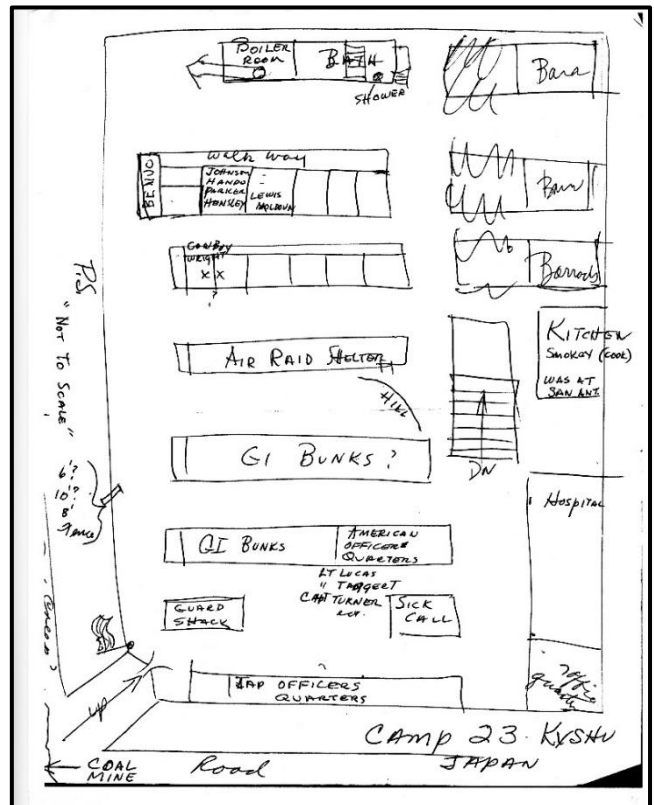 BOILER
ROOM
BATH
SHOWER
Bara
walk way
BENJO
JOHNSON
HANDO
PARKER
HENSLEY
LEWIS
MOLDOUN
Barr
COWBOY
WRIGHT
X X
?
Barracks
P.S.
"NOT TO SCALE"
AIR RAID SHELTER
HILL
KITCHEN
SMOKEY (COOK)
WAS AT
SAN ANT.
DN
GI BUNKS?
6'?
10'?
8'
Fence
Hospital
GI BUNKS
AMERICAN
OFFICERS
QUARTERS
LT LUCAS
" TAGGERT
CAPT TURNER
GUARD
SHACK
SICK
CALL
?
JAP OFFICERS
QUARTERS
UP
CAMP 23. KYSHU
JAPAN
COAL
MINE
Road